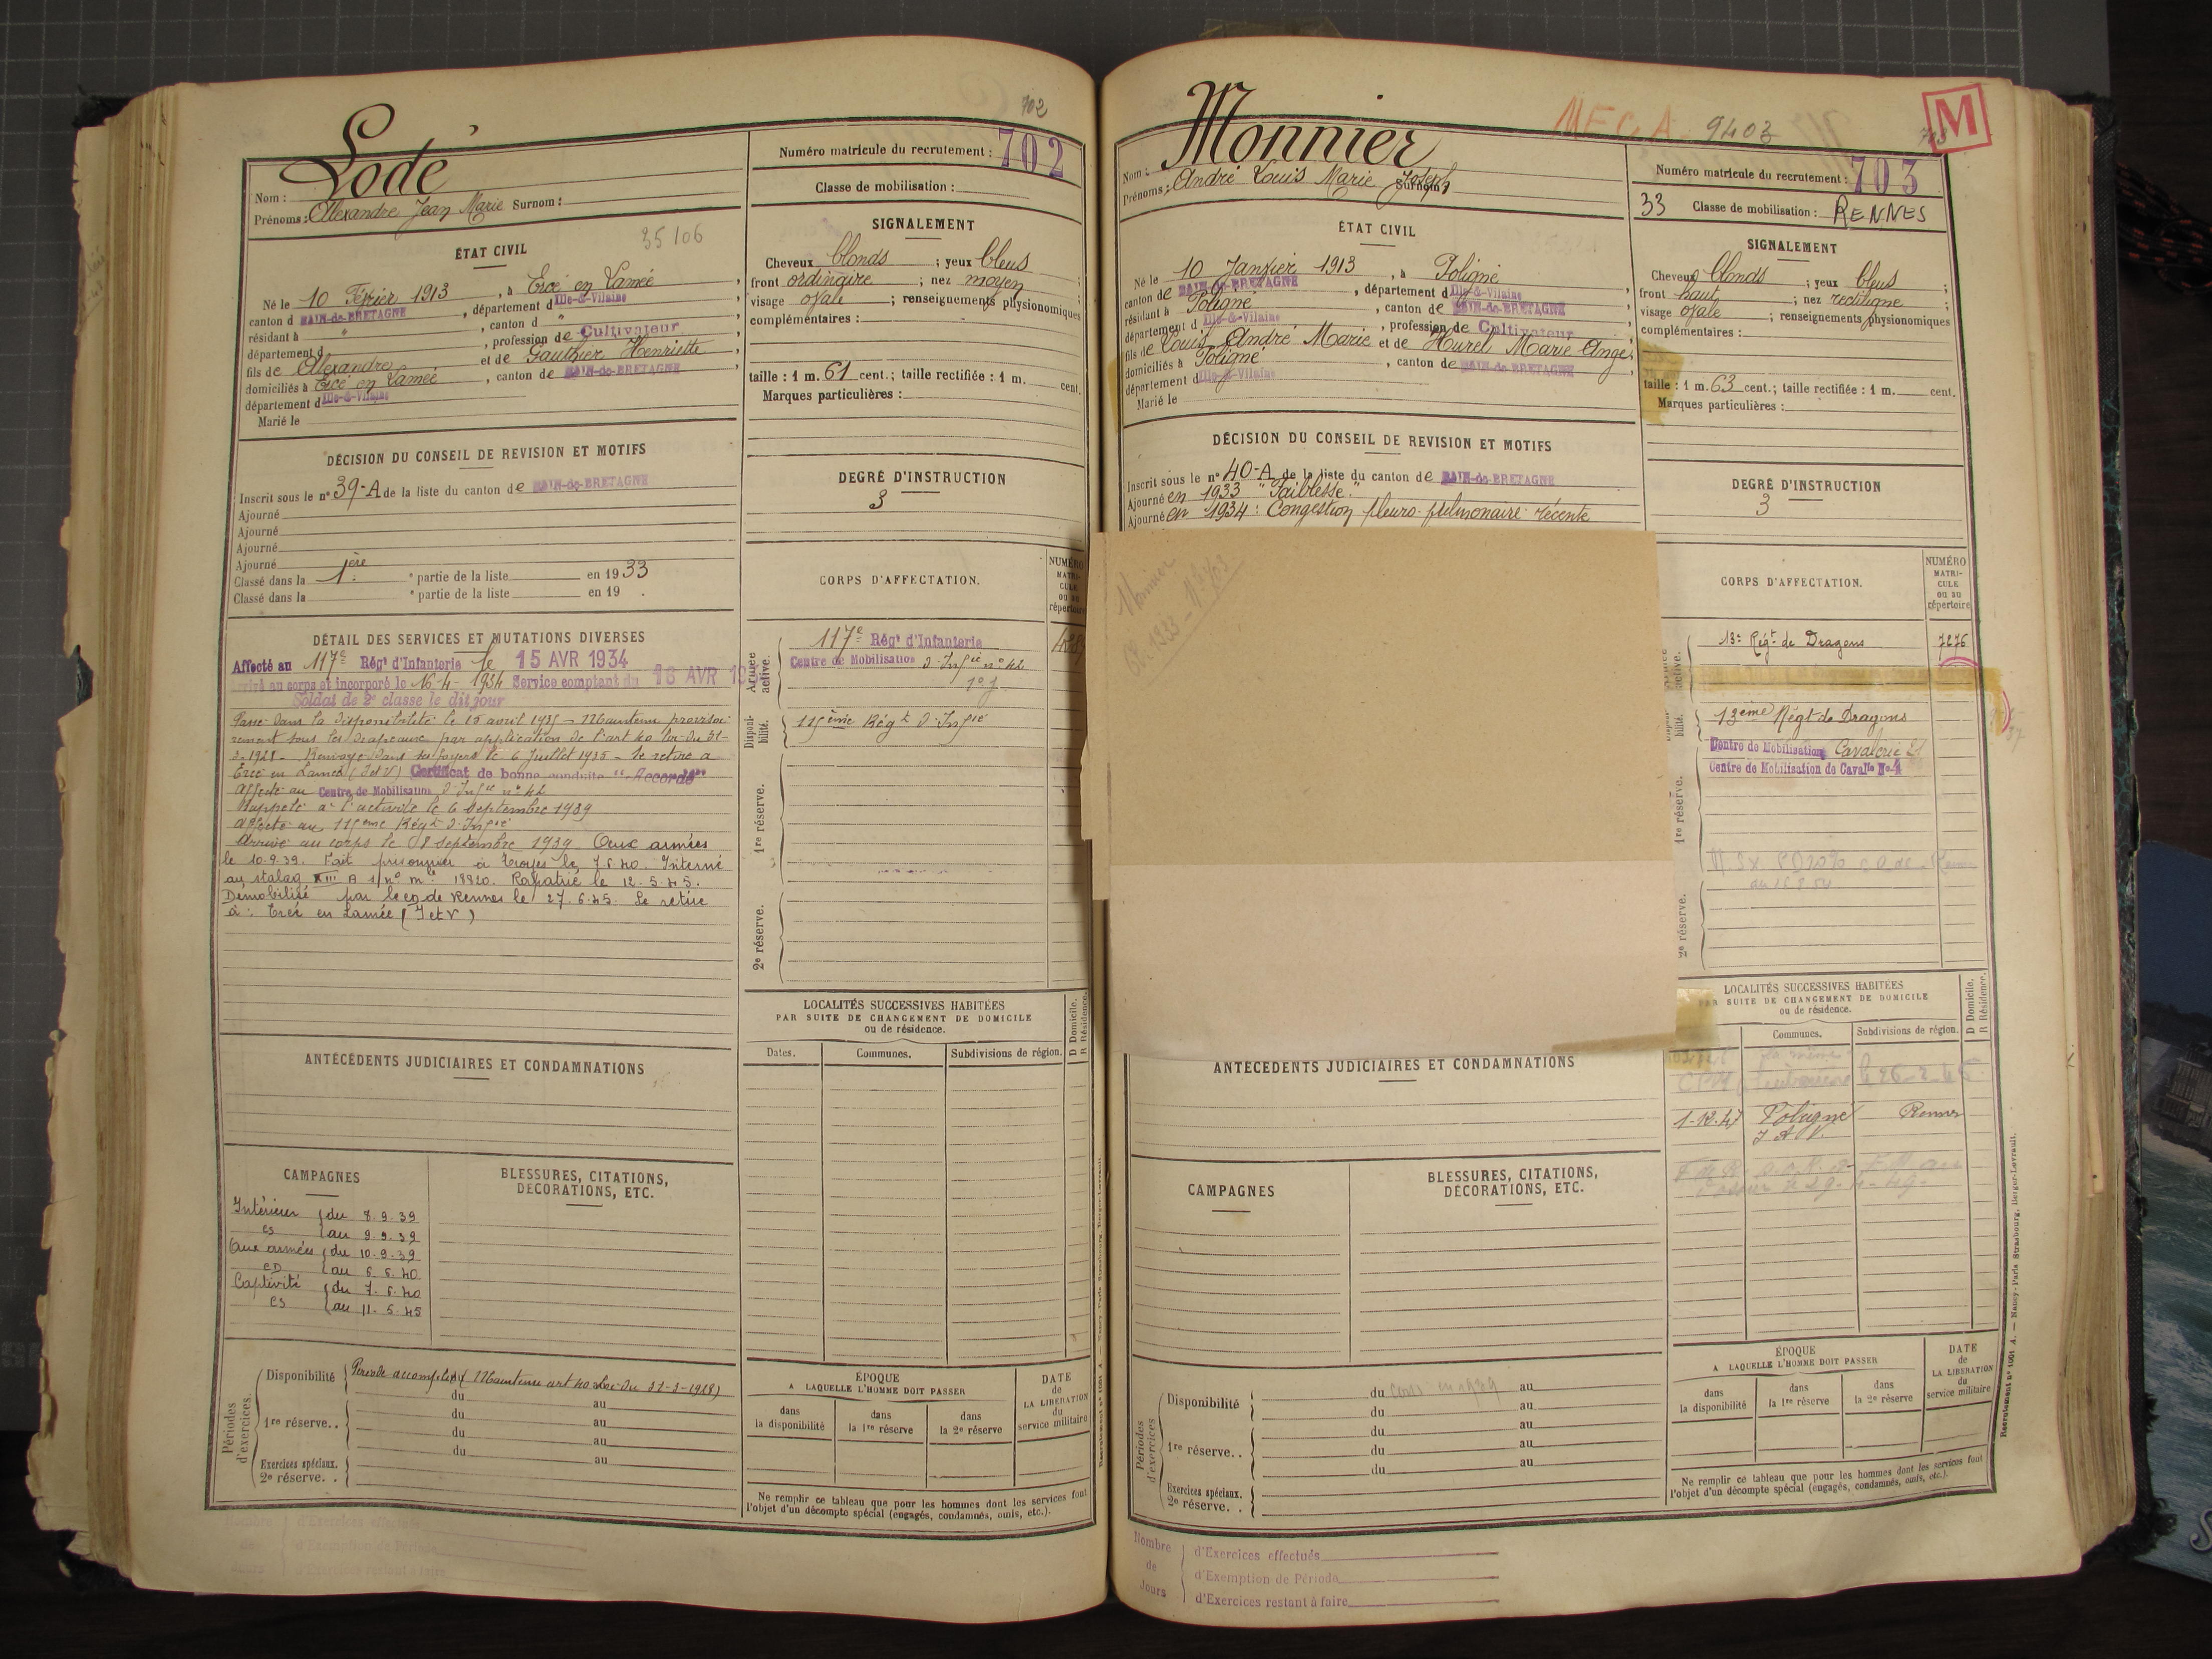 702
Lodé
Nom :
Prénoms : Alexandre Jean Marie Surnom :
Numéro matricule du recrutement : 702
Classe de mobilisation :
35106
ÉTAT CIVIL
Né le 10 Février 1913, à Ercé en Lamée,
canton d BAIN-de-BRETAGNE, département d Ille-&-Vilaine,
résidant à ", canton d ",
département d , profession de Cultivateur,
fils de Alexandre et de Gauthier Henriette,
domiciliés à Ercé en Lamée, canton de BAIN-de-BRETAGNE
département d Ille-&-Vilaine
Marié le
SIGNALEMENT
Cheveux blonds ; yeux bleus ;
front ordinaire ; nez moyen ;
visage ovale ; renseignements physionomiques
complémentaires :
taille : 1 m. 61 cent. ; taille rectifiée : 1 m. cent.
Marques particulières :
DÉCISION DU CONSEIL DE REVISION ET MOTIFS
Inscrit sous le n° 39-A de la liste du canton de BAIN-de-BRETAGNE
Ajourné
Ajourné
Ajourné
Ajourné
Classé dans la 1ère partie de la liste en 1933
Classé dans la e partie de la liste en 19 .
DEGRÉ D'INSTRUCTION
3
DÉTAIL DES SERVICES ET MUTATIONS DIVERSES
Affecté au 117e Régt d'Infanterie le 15 AVR 1934
Arrivé au corps et incorporé le 16-4-1934 Service comptant du 16 AVR
Soldat de 2e classe le dit jour
Passé dans la disponibilité le 15 avril 1935 - Maintenu provisoi-
rement sous les drapeaux par application de l'art 40 loi du 31-
3-1928 - Renvoyé dans ses foyers le 6 Juillet 1935 - Se retire à
Ercé en Lamée (I et V) Certificat de bonne conduite "Accordé"
Affecté au Centre de Mobilisation d'Infie n° 42
Rappelé à l'activité le 6 septembre 1939
Affecté au 115ème Régt d'Infie
Arrivé au corps le 8 septembre 1939 Aux armées
le 10.9.39. Fait prisonnier à Troyes le 7.6.40. Interné
au stalag XIII B s/n° mle 18820. Rapatrié le 12.5.45.
Démobilisé par le cg de Rennes le 27.6.45. Se retire
à : Ercé en Lamée (I et V)
CORPS D'AFFECTATION.
NUMÉRO MATRICULE ou au répertoire
Armée active.
117e Régt d'Infanterie
Centre de Mobilisation d'Infie n° 42
Disponibilité.
115ème Régt d'Infie
1re réserve.
2e réserve.
LOCALITÉS SUCCESSIVES HABITÉES
PAR SUITE DE CHANGEMENT DE DOMICILE
ou de résidence.
D Domicile.
R Résidence.
Dates. Communes. Subdivisions de région.
ANTÉCÉDENTS JUDICIAIRES ET CONDAMNATIONS
CAMPAGNES
BLESSURES, CITATIONS,
DÉCORATIONS, ETC.
Intérieur du 8.9.39
CS au 9.9.39
Aux armées du 10.9.39
CD au 6.6.40
Captivité du 7.6.40
CS au 11.5.45
Périodes d'exercices.
Disponibilité Période accomplie (Maintenu art 40 loi du 31-3-1928)
du au
1re réserve.. du au
du au
du au
Exercices spéciaux.
2e réserve. .
ÉPOQUE
A LAQUELLE L'HOMME DOIT PASSER
dans la disponibilité
dans la 1re réserve
dans la 2e réserve
DATE de LA LIBÉRATION du service militaire
Ne remplir ce tableau que pour les hommes dont les services font
l'objet d'un décompte spécial (engagés, condamnés, omis, etc.).
Nombre de Jours
d'Exercices effectués
d'Exemption de Période
d'Exercices restant à faire
MEGA 9403
703
M
Monnier
Nom :
Prénoms : André Louis Marie Joseph Surnom :
Numéro matricule du recrutement : 703
33 Classe de mobilisation : RENNES
ÉTAT CIVIL
Né le 10 Janvier 1913, à Poligné
canton de BAIN-de-BRETAGNE, département d Ille-&-Vilaine
résidant à Poligné, canton de BAIN-de-BRETAGNE
département d Ille-&-Vilaine, profession de Cultivateur,
fils de Louis André Marie et de Hurel Marie Ange,
domiciliés à Poligné, canton de BAIN-de-BRETAGNE
département d Ille-&-Vilaine
Marié le
SIGNALEMENT
Cheveux blonds ; yeux bleus ;
front haut ; nez rectiligne ;
visage ovale ; renseignements physionomiques
complémentaires :
taille : 1 m. 63 cent. ; taille rectifiée : 1 m. cent.
Marques particulières :
DÉCISION DU CONSEIL DE REVISION ET MOTIFS
Inscrit sous le n° 40-A de la liste du canton de BAIN-de-BRETAGNE
Ajourné en 1933 "Faiblesse."
Ajourné en 1934 : Congestion pleuro-pulmonaire récente
DEGRÉ D'INSTRUCTION
3
Monnier
Cl. 1933 - N° 703
CORPS D'AFFECTATION.
NUMÉRO MATRICULE ou au répertoire
13e Régt de Dragons 7276
13ème Régt de Dragons
Centre de Mobilisation Cavalerie 21
Centre de Mobilisation de Cavalle No 4
1re réserve.
2e réserve.
LOCALITÉS SUCCESSIVES HABITÉES
PAR SUITE DE CHANGEMENT DE DOMICILE
ou de résidence.
D Domicile.
R Résidence.
Communes. Subdivisions de région.
1-12-47 Poligné Rennes
I & V.
ANTÉCÉDENTS JUDICIAIRES ET CONDAMNATIONS
CAMPAGNES
BLESSURES, CITATIONS,
DÉCORATIONS, ETC.
Périodes d'exercices
Disponibilité du au
du au
du au
1re réserve. . du au
du au
Exercices spéciaux.
2e réserve. .
ÉPOQUE
A LAQUELLE L'HOMME DOIT PASSER
dans la disponibilité
dans la 1re réserve
dans la 2e réserve
DATE de LA LIBÉRATION du service militaire
Ne remplir ce tableau que pour les hommes dont les services font
l'objet d'un décompte spécial (engagés, condamnés, omis, etc.).
Recrutement n° 1001 A. — Nancy-Paris-Strasbourg, Berger-Levrault.
Nombre de Jours
d'Exercices effectués
d'Exemption de Période
d'Exercices restant à faire